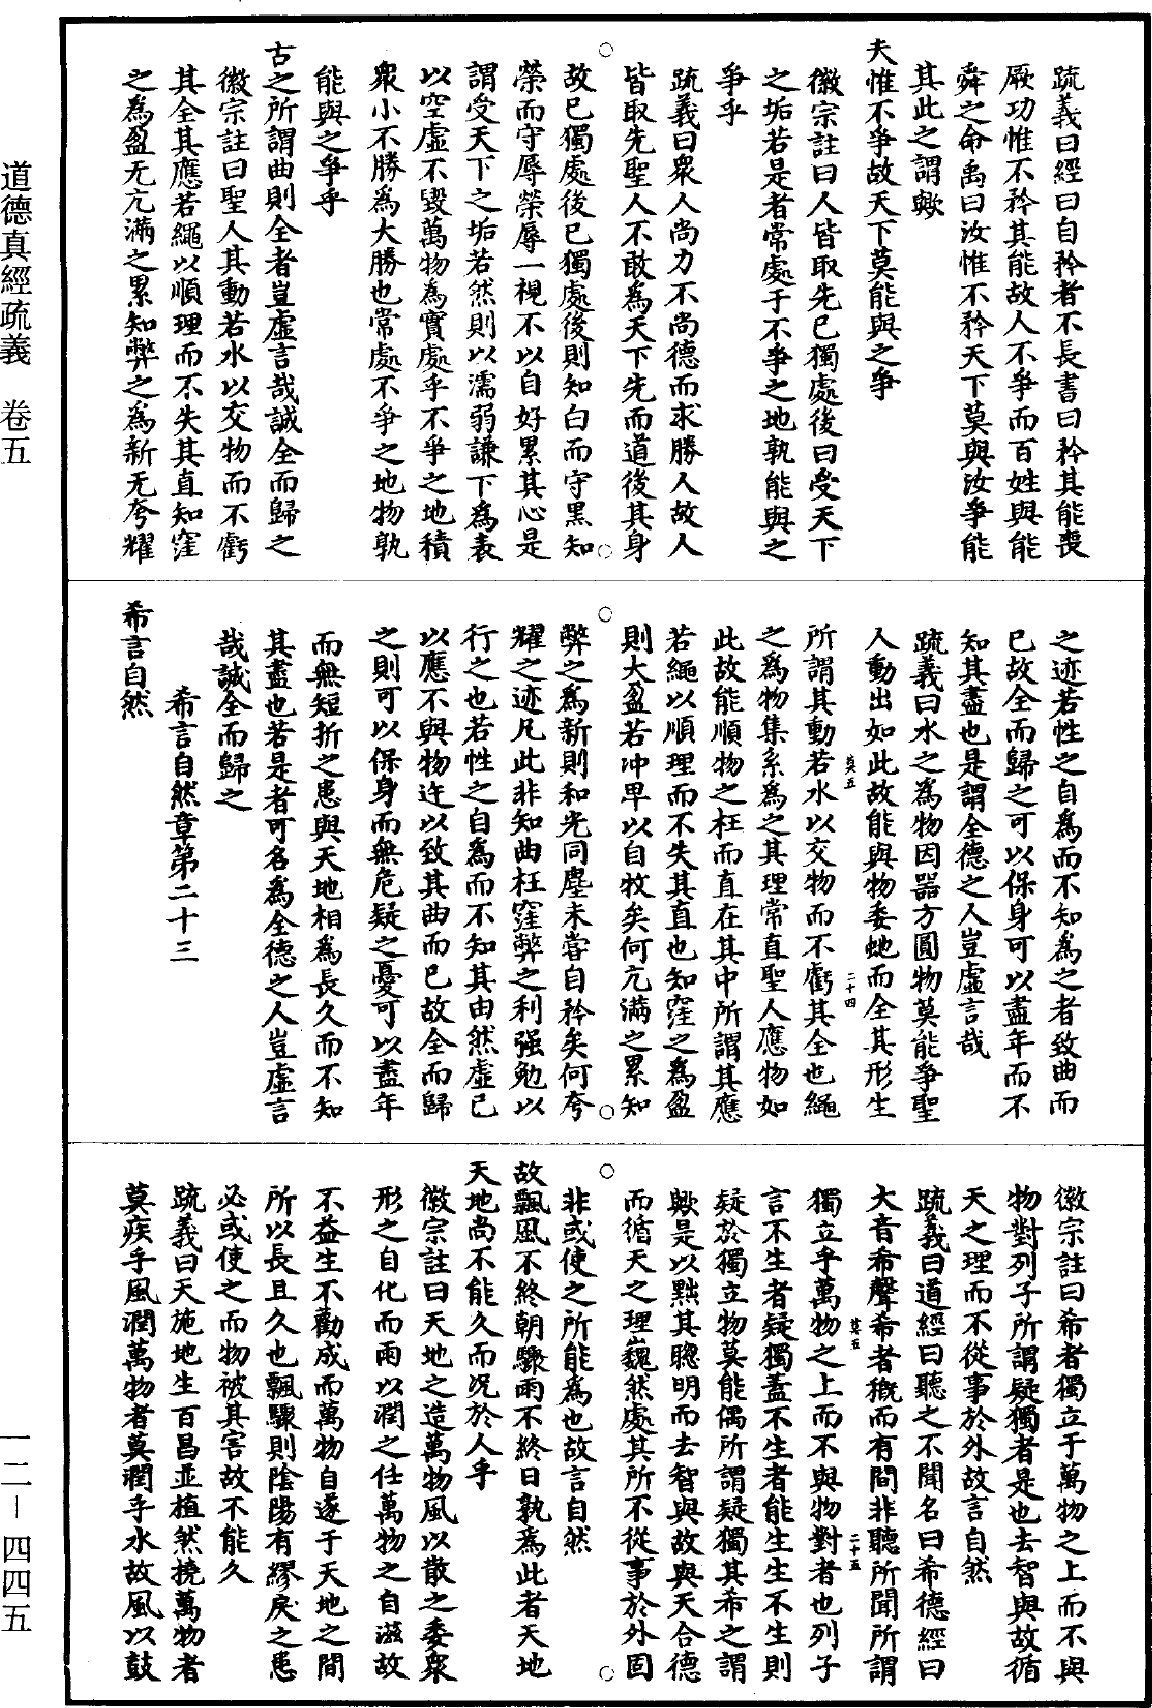 疏義曰經曰自矜者不長書曰矜其能喪
厥功惟不矜其能故人不爭而百姓與能
舜之命禹曰汝惟不矜天下莫與汝爭能
其此之謂歟
夫惟不爭故天下莫能與之爭
徽宗註曰人皆取先己獨處後曰受天下
之垢若是者常處于不爭之地孰能與之
爭乎
疏義曰衆人尚力不尚德而求勝人故人
皆取先聖人不敢為天下先而道後其身
故已獨處後已獨處後則知白而守黑知
榮而守辱榮辱一視不以自好累其心是
謂受天下之垢若然則以濡弱謙下為表
以空虛不毀萬物為實處乎不爭之地積
衆小不勝為大勝也常處不爭之地物孰
能與之爭乎
古之所謂曲則全者豈虛言哉誠全而歸之
徽宗註曰聖人其動若水以交物而不虧
其全其應若繩以順理而不失其直知窪
之為盈无亢滿之累知弊之為新无夸耀
之迹若性之自為而不知為之者致曲而
已故全而歸之可以保身可以盡年而不
知其盡也是謂全德之人豈虛言哉
疏義曰水之為物因器方圓物莫能爭聖
人動出如此故能與物委虵而全其形生
所謂其動若水以交物而不虧其全也繩
之為物集糸為之其理常直聖人應物如
此故能順物之枉而直在其中所謂其應
若繩以順理而不失其直也知窪之為盈
則大盈若冲卑以自牧矣何亢滿之累知
弊之為新則和光同塵未嘗自矜矣何夸
耀之迹凡此非知曲枉窪弊之利强勉以
行之也若性之自為而不知其由然虛己
以應不與物迕以致其曲而已故全而歸
之則可以保身而無危疑之憂可以盡年
而無短折之患與天地相為長久而不知
其盡也若是者可名為全德之人豈虛言
哉誠全而歸之
希言自然章第二十三
希言自然
徽宗註曰希者獨立于萬物之上而不與
物對列子所謂疑獨者是也去智與故循
天之理而不從事於外故言自然
疏義曰道經曰聽之不聞名曰希德經曰
大音希聲希者概而有間非聽所聞所謂
獨立乎萬物之上而不與物對者也列子
言不生者疑獨蓋不生者能生生不生則
疑於獨立物莫能偶所謂疑獨其希之謂
歟是以黜其聰明而去智與故與天合德
而循天之理巍然處其所不從事於外固
非或使之所能為也故言自然
故飄風不終朝驟雨不終日孰為此者天地
天地尚不能久而況於人乎
徽宗註曰天地之造萬物風以散之委衆
形之自化而雨以潤之任萬物之自滋故
不益生不勸成而萬物自遂于天地之間
所以長且久也飄驟則陰陽有繆戾之患
必或使之而物被其害故不能久
疏義曰天施地生百昌並植然撓萬物者
莫疾乎風潤萬物者莫潤乎水故風以鼓
莫五
二十四
莫五
二十五
道德真經疏義　卷五
一二－四四五